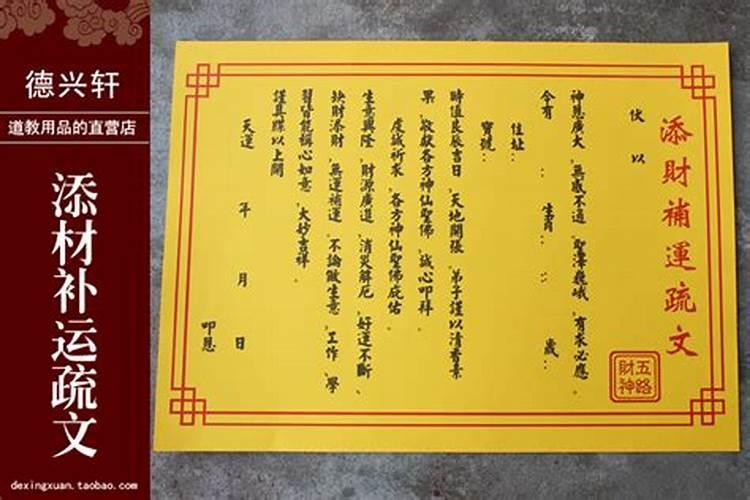 德兴轩
道教用品的直营店
添材补运疏文
dexingxuan.taobao.com
添財補運疏文
五路
財神
伏以
神恩廣大、無感不通、聖澤巍峨、有求必應。
今有：生肖：：歲、
住址：
寶號：
時值良辰吉日、天地開張、弟子謹以清香素
果、敬獻各方神仙聖佛、誠心叩拜。
虔誠祈求、各方神仙聖佛庇佑。
生意興隆、財源廣進、消災解厄、好運不斷、
缺財添財、無運補運、不論做生意、工作、學
習皆能稱心如意、大妙吉祥。
謹具牒以上聞
天運 年 月 日 叩恩